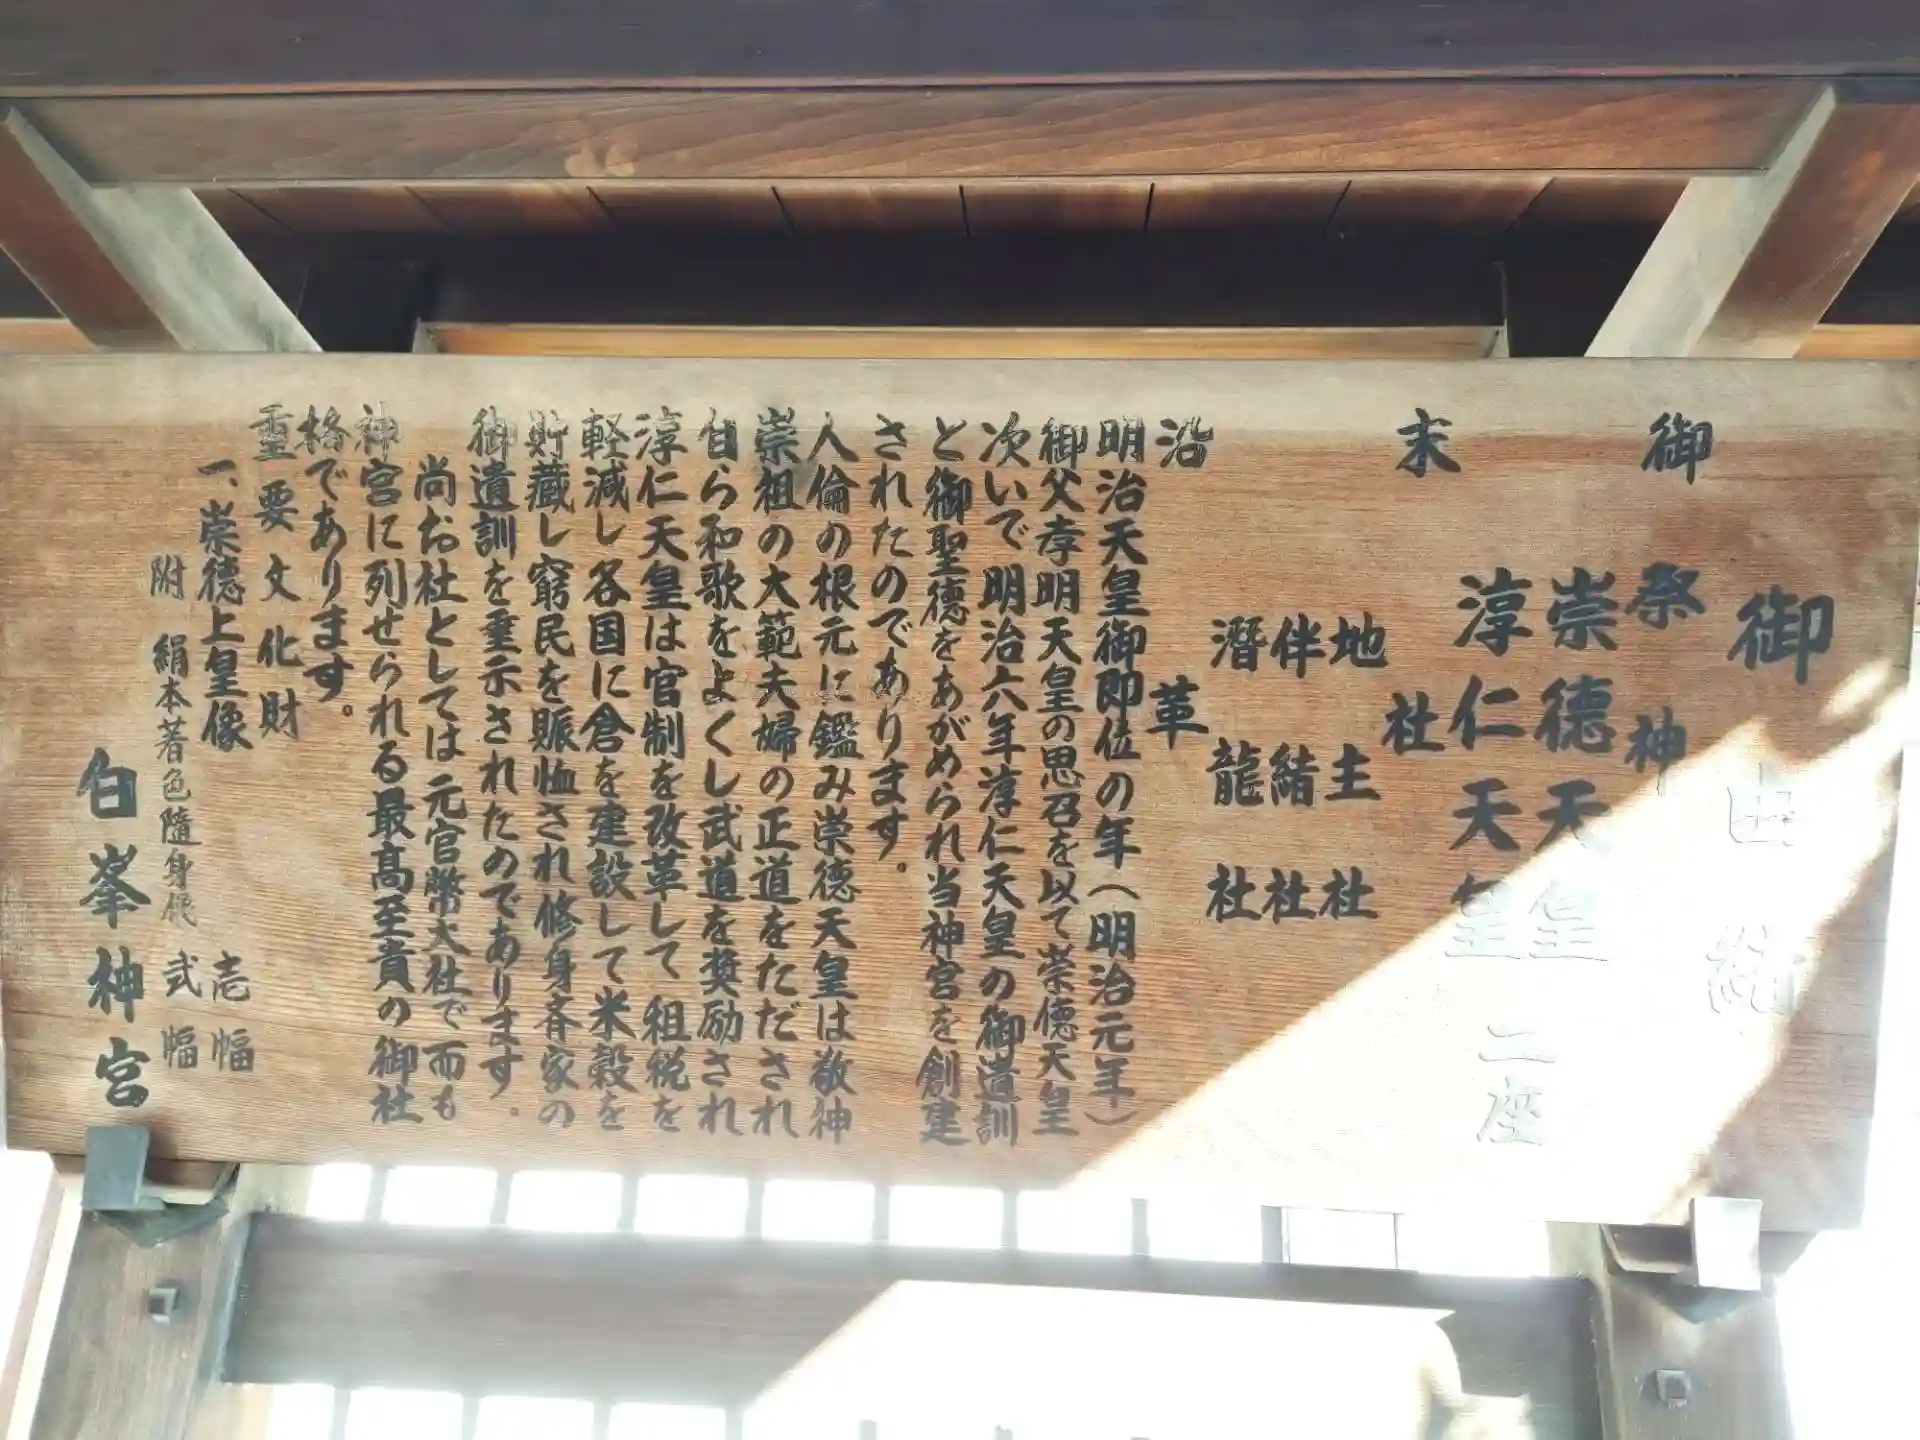 御由緒
御祭神
崇徳天皇
淳仁天皇 二座
末社
地主社
伴緒社
潛龍社
沿革
明治天皇御即位の年（明治元年）
御父孝明天皇の思召を以て崇徳天皇
次いで明治六年淳仁天皇の御遺訓
と御聖徳をあがめられ当神宮を創建
されたのであります。
人倫の根元に鑑み崇徳天皇は敬神
崇祖の大範夫婦の正道をただされ
自ら和歌をよくし武道を奨励され
淳仁天皇は官制を改革して租税を
軽減し各国に倉を建設して米穀を
貯蔵し窮民を賑恤され修身斉家の
御遺訓を垂示されたのであります。
尚お社としては元官幣大社で而も
神宮に列せられる最高至貴の御社
格であります。
重要文化財
一、崇徳上皇像 壱幅
附 絹本著色隨身像 弍幅
白峯神宮